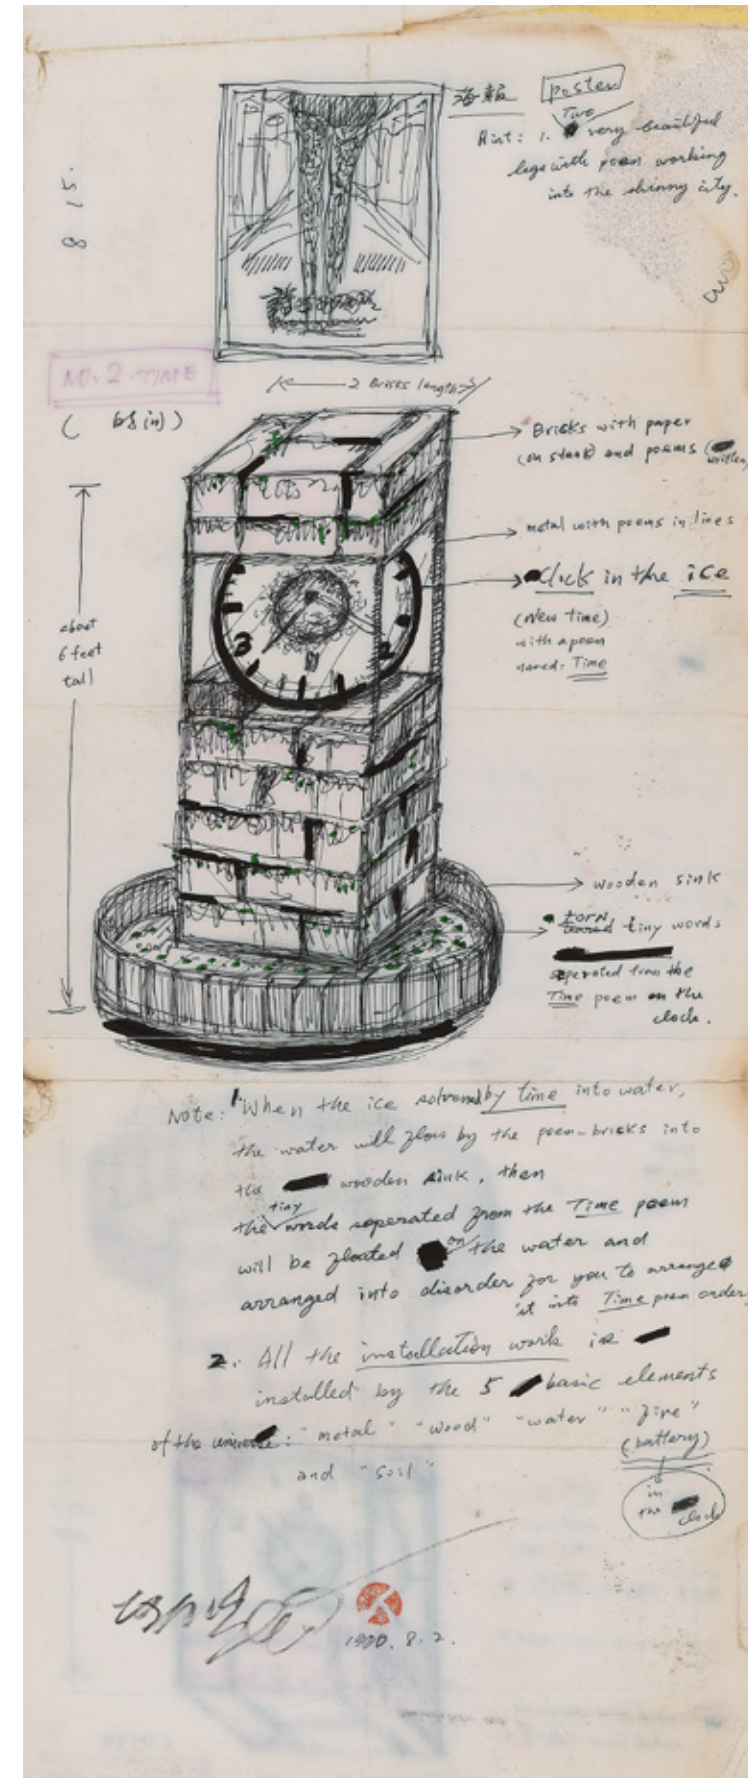 海報 poster
Two
Hint: 1. very beautiful
legs with poem working
into the shinny city.
8 15.
NO. 2. TIME
2 Bricks length
Bricks with paper
(on stank) and poems (written)
metal with poems in lines
Clock in the ice
(New Time)
with a poem
named: Time
3
2
about
6 feet
tall
wooden sink
torn
tiny words
seperated from the
Time poem on the
clock.
Note: 1. When the ice solvened by time into water,
the water will flow by the poem-bricks into
the wooden sink, then
tiny
the words seperated from the Time poem
will be floated on the water and
arranged into disorder for you to arrange
it into Time poem order
2. All the installation work is
installed by the 5 basic elements
of the universe: "metal" "wood" "water" "fire"
(battery)
and "soil"
in
the clock
8. 2.